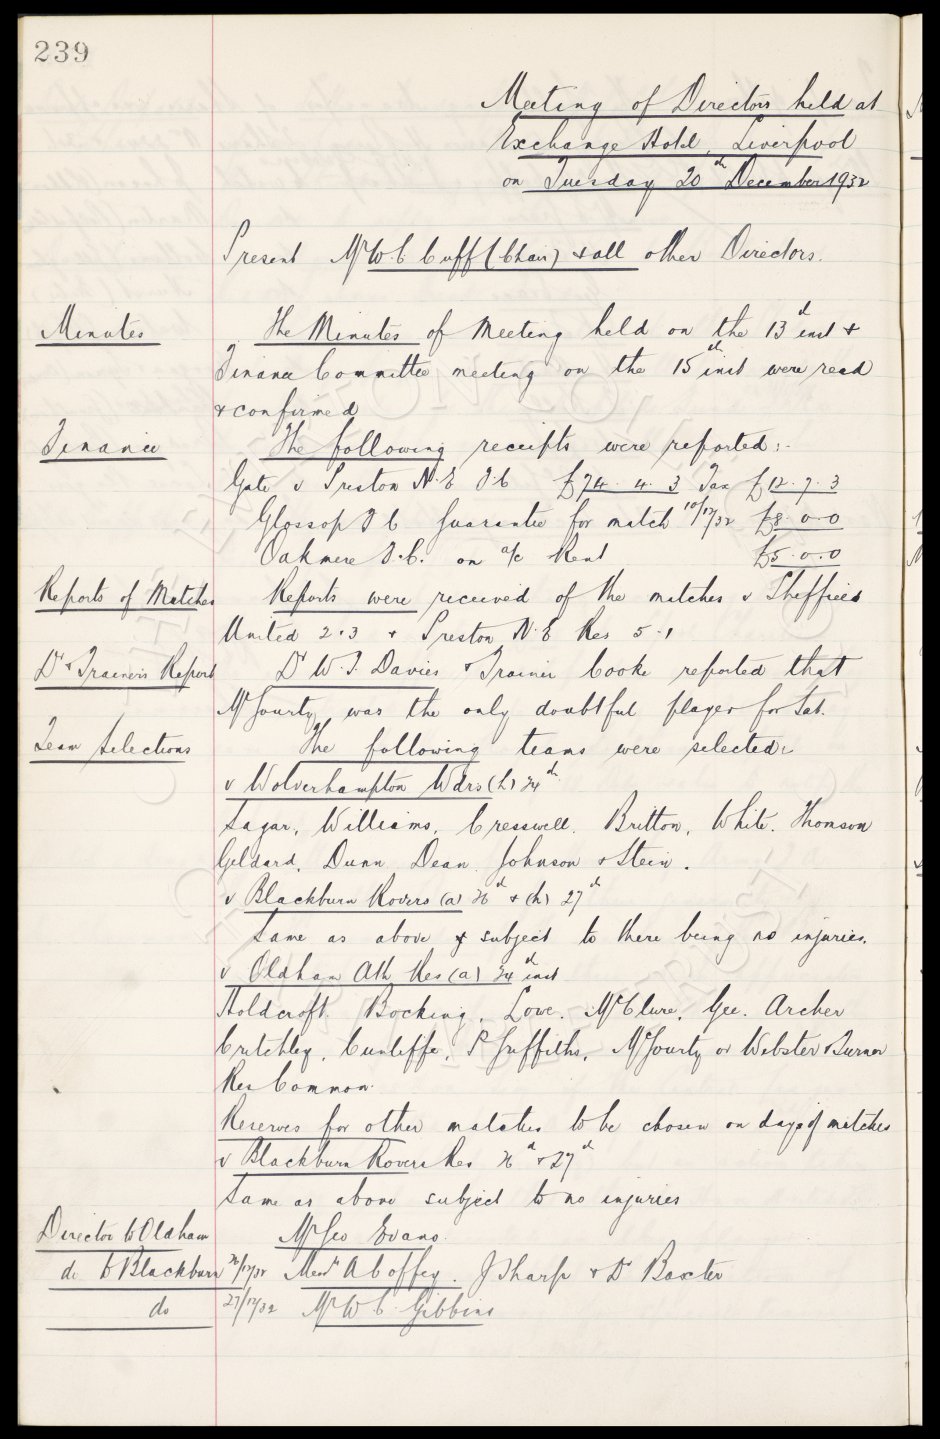 239
Meeting of Directors held at
Exchange Hotel, Liverpool
on Tuesday 20th December 1932
Present Mr W.C. Cuff (Chair) & all other Directors.
Minutes The Minutes of Meeting held on the 13th inst &
Finance Committee meeting on the 15th inst were read
& confirmed
Finance The following receipts were reported:-
Gate v Preston N.E F.C £74. 4. 3 Tax £12. 7. 3
Glossop F C Guarantee for match 10/12/32 £8. 0-0
Oakmere F.C. on a/c Rent £5. 0. 0
Reports of Matches Reports were received of the matches v Sheffield
United 2.3 & Preston N.E Res 5.1
Dr & Trainer's Report Dr W.T. Davies & Trainer Cooke reported that
McGourty was the only doubtful player for Sat.
Team Selections The following teams were selected:-
v Wolverhampton Wdrs (h) 24th
Sagar, Williams, Cresswell, Britton, White, Thomson
Geldard, Dunn, Dean, Johnson & Stein.
v Blackburn Rovers (a) 26th & (h) 27th
Same as above & subject to there being no injuries.
v Oldham Ath Res (a) 24th inst
Holdcroft. Bocking, Lowe, McClure, Gee. Archer
Critchley, Cunliffe, P Griffiths, McGourty or Webster & Turner
Res Common.
Reserves for other matches to be chosen on day of matches
v Blackburn Rovers Res 26th & 27th
Same as above subject to no injuries
Director to Oldham Mr Geo Evans.
do to Blackburn 26/12/32 Messrs A Coffey. J Sharp & Dr Baxter
do 27/12/32 Mr W C Gibbins